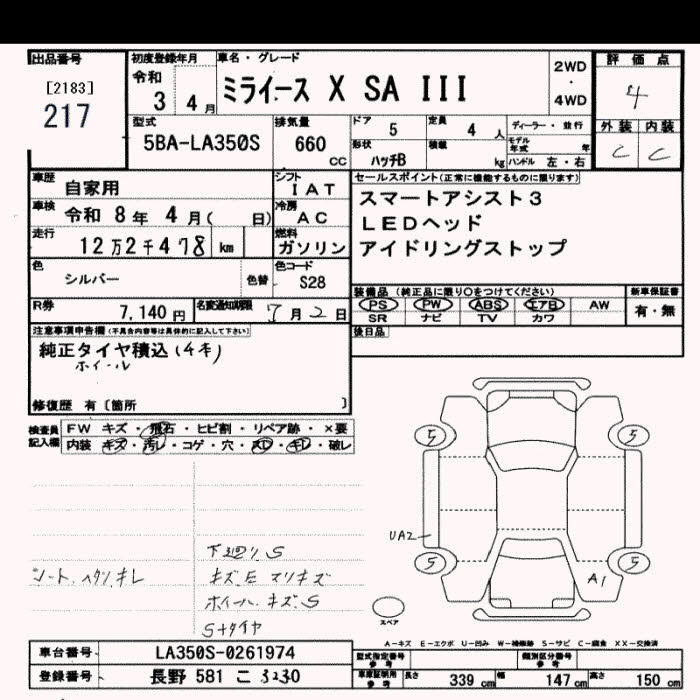 出品番号
[2183]
217
初度登録年月
令和
3 4月
車名・グレード
ミライース X SA III
2WD
・
4WD
評価点
4
外装 内装
C C
型式
5BA-LA350S
排気量
660
CC
ドア
5
定員
4 人
形状
ハッチB
積載
kg
ディーラー・並行
モデル年式 年
ハンドル 左・右
車歴
自家用
シフト
IAT
車検
令和 8年 4月( 日)
冷房
AC
走行
12万2千478 km
燃料
ガソリン
セールスポイント(正常に機能するものに限ります)
スマートアシスト3
LEDヘッド
アイドリングストップ
色
シルバー
色替
色コード
S28
R券
7,140円
名変通知期限
7月2日
装備品 (純正品に限り○をつけてください)
PS PW ABS エアB AW
SR ナビ TV カワ
新車保証書
有・無
後日品
注意事項申告欄(不具合内容等は具体的に記入して下さい)
純正タイヤ積込(4本)
ホイール
修復歴 有〔箇所 〕
検査員
記入欄
FW キズ・飛石・ヒビ割・リペア跡・×要
内装 キズ・汚レ・コゲ・穴・スレ・キレ・破レ
シート
下廻り S
ホイール キズ.S
S+タイヤ
S
S
UA2
S
S
A1
スペア
A-キズ E-エクボ U-凹み W-補修跡 S-サビ C-腐食 XX-交換済
車台番号
LA350S-0261974
登録番号
長野 581 こ 3230
型式指定番号
参考
類別区分番号
参考
車庫証明用
参考
長さ 339 cm
幅 147 cm
高さ 150 cm